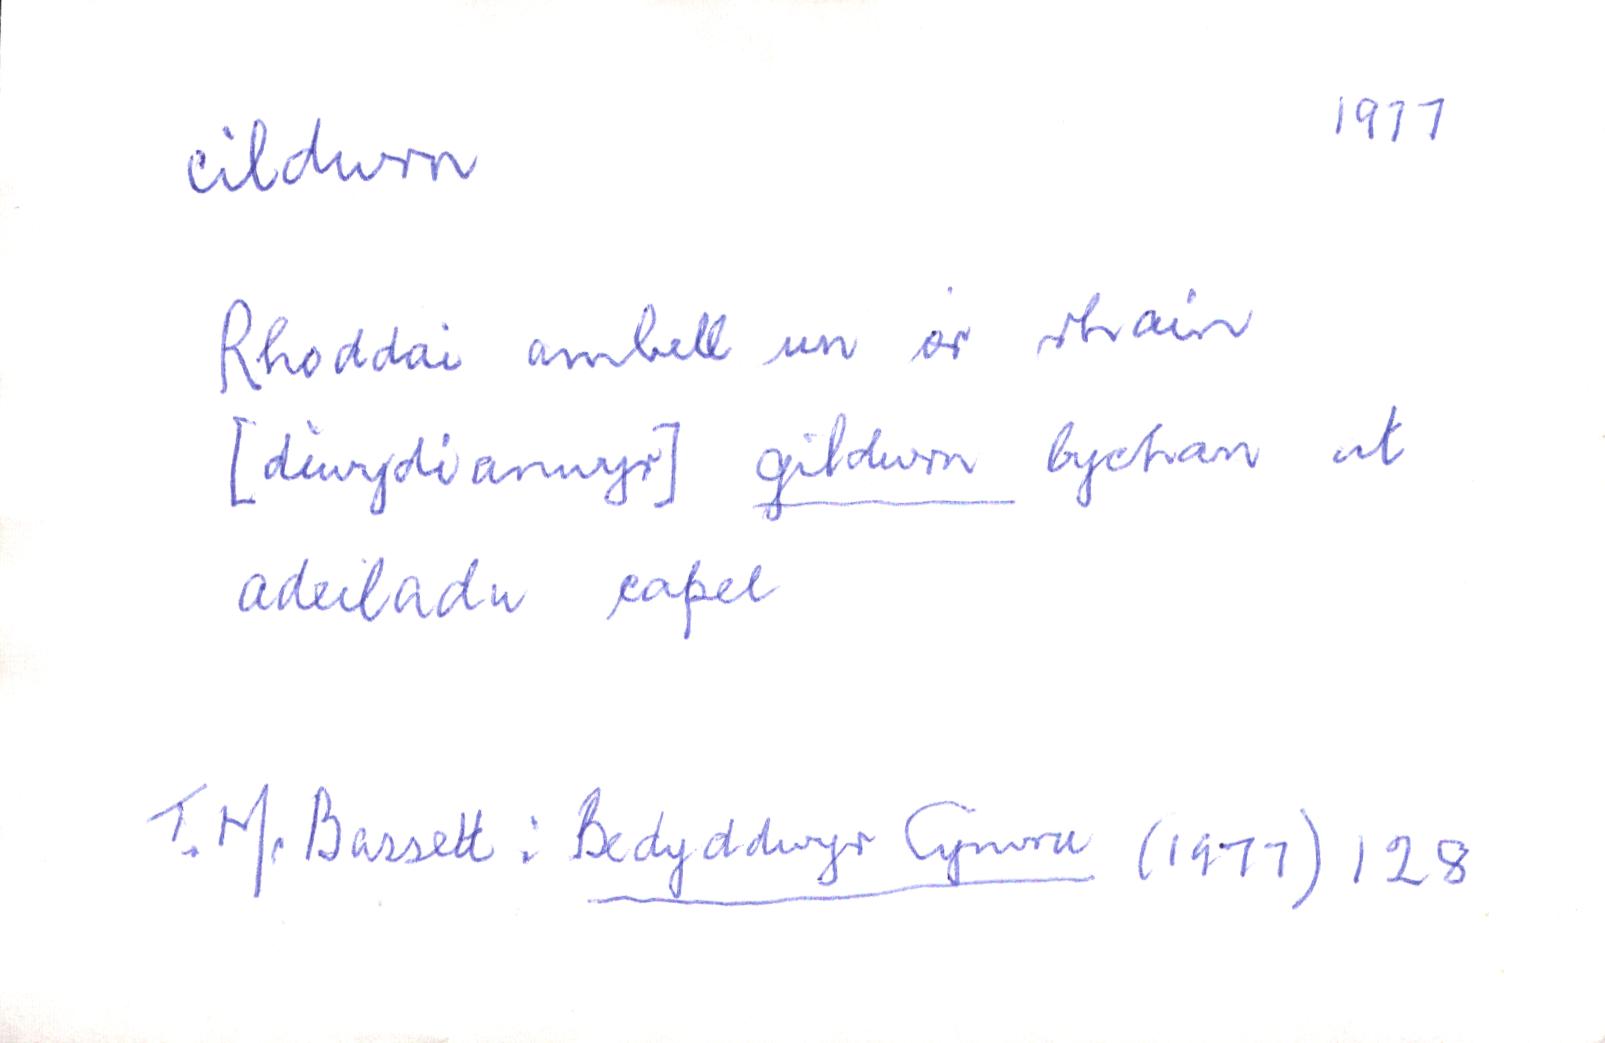 cildwrn 1977
Rhoddai ambell un o'r rhain
[diwydianwyr] gildwrn bychan at
adeiladu capel
T. M. Bassett: Bedyddwyr Cymru (1977) 128